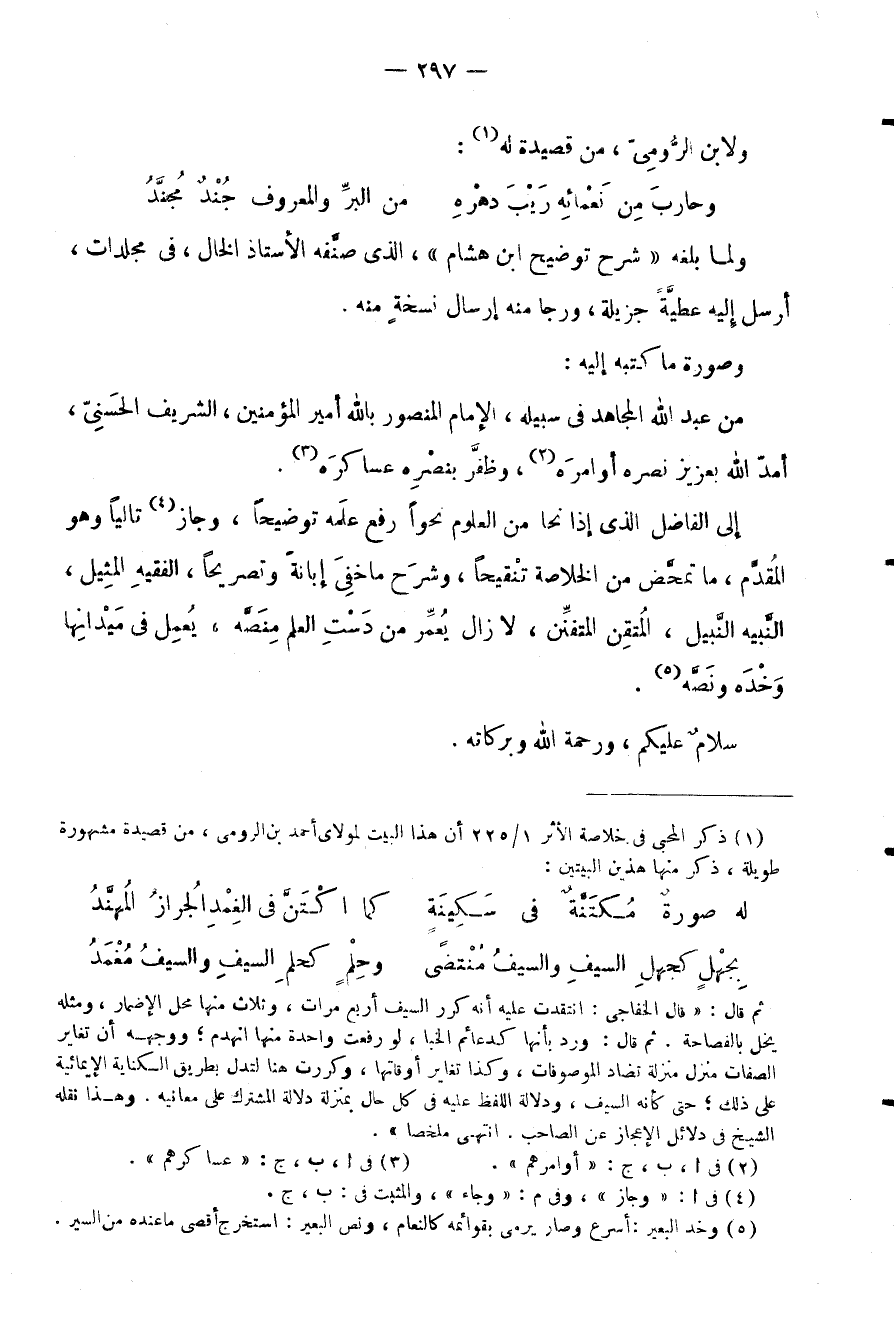 — ٢٩٧ —
ولابن الرُّومِىّ ، من قصيدة له(١) :
وحاربَ مِن نَعْمائِه رَيْبَ دهْرِهِ من البرِّ والمعروف جُنْدٌ مُجنَّدُ
ولمـا بلغه « شرح توضيح ابن هشام » ، الذى صنَّفه الأستاذ الخال ، فى مجلدات ،
أرسل إليه عطيَّةً جزيلة ، ورجا منه إرسال نسخةٍ منه .
وصورة ما كتبه إليه :
من عبد الله المجاهد فى سبيله ، الإمام المنصور بالله أمير المؤمنين ، الشريف الحَسَنِىّ ،
أمدّ الله بعزيز نصره أوامرَه(٢) ، وظفَّر بنصْرِه عساكرَه(٣) .
إلى الفاضل الذى إذا نحا من العلوم نحواً رفع علَمه توضيحاً ، وجاز(٤) تالياً وهو
المُقدَّم ، ما تمحَّض من الخلاصة تنْقيحاً ، وشرَح ماخفِىَ إبانةً وتصريحاً ، الفقيهِ المثِيل ،
النَّبيه النَّبيل ، المُتقِن المتفنِّن ، لا زال يُعمِّر من دَسْتِ العلم مِنَصَّه ، يُعمِل فى مَيْدانِها
وَخْدَه ونَصَّه(٥) .
سلامٌ عليكم ، ورحمة الله وبركاته .
(١) ذكر المحبى فى خلاصة الأثر ٢٢٥/١ أن هذا البيت لمولاى أحمد بن الرومى ، من قصيدة مشهورة
طويلة ، ذكر منها هذين البيتين :
له صورةٌ مُـكتَنَّةٌ فى سَـكِينَةٍ كما اكْتَنَّ فى الغِمْدِ الجُرازُ المُهنَّدُ
بِجهْلٍ كجهلِ السيفِ والسيفُ مُنْتضًى وحِلْمٍ كحلمِ السيفِ والسيفُ مُغْمَدُ
ثم قال : « قال الخفاجى : انتقدت عليه أنه كرر السيف أربع مرات ، وثلاث منها محل الإضمار ، ومثله
يخل بالفصاحة . ثم قال : ورد بأنها كدعائم الخبا ، لو رفعت واحدة منها انهدم ؛ ووجهـه أن تغاير
الصفات منزل منزلة تضاد الموصوفات ، وكذا تغاير أوقاتها ، وكررت هنا لتدل بطريق الـكناية الإيمائية
على ذلك ؛ حتى كأنه السيف ، ودلالة اللفظ عليه فى كل حال بمنزلة دلالة المشترك على معانيه . وهـذا نقله
الشيخ فى دلائل الإعجاز عن الصاحب . انتهى ملخصا » .
(٢) فى ا ، ب ، ج : « أوامرهم » . (٣) فى ا ، ب ، ج : « عساكرهم » .
(٤) فى ا : « وجاز » ، وفى م : « وجاء » ، والمثبت فى : ب ، ج .
(٥) وخد البعير : أسرع وصار يرمى بقوائمه كالنعام ، ونص البعير : استخرج أقصى ماعنده من السير .